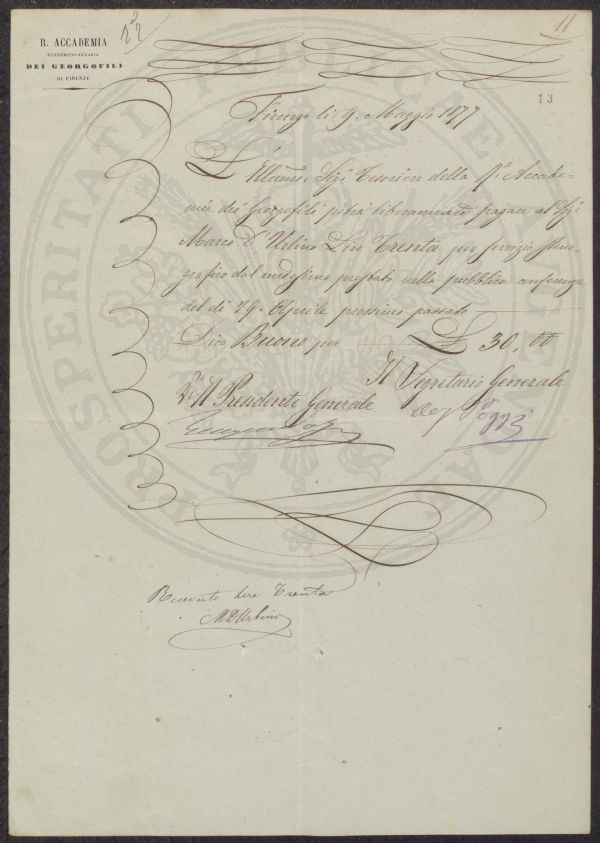 R. ACCADEMIA
ECONOMICO-AGRARIA
DEI GEORGOFILI
DI FIRENZE
12
11
13
PROSPERITATI PUBLICAE
Firenze li 9. Maggio 1877
L'Illmo. Sigr. Tesoriere della Re. Accade-
mia dei Georgofili potrà liberamente pagare al Sigr
Marco D'Urbino Lire Trenta per servizio steno-
grafico dal medesimo prestato nella pubblica conferenza
del dì 29. Aprile prossimo passato
Dico Buono per £ 30,00
Il Segretario Generale
Vo. Il Presidente Generale
Ricevuto lire Trenta
MDUrbino